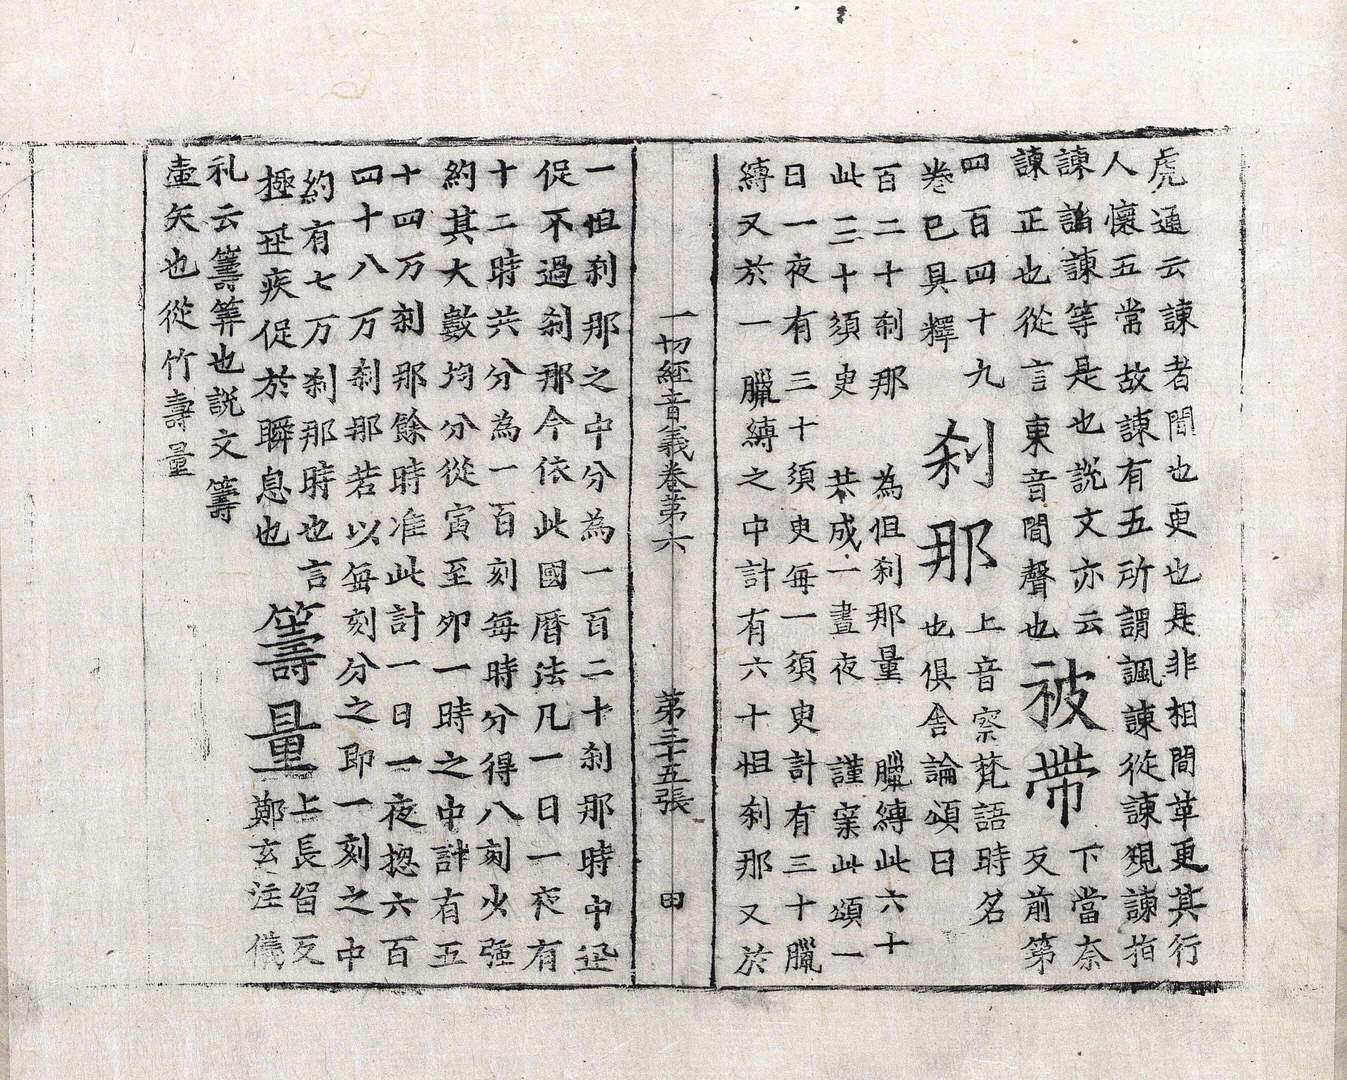 虎通云諫者閒也更也是非相閒革更其行
人懷五常故諫有五所謂諷諫從諫䂓諫指
諫謟諫等是也說文亦云
諫正也從言東音間聲也
被帶
下當奈
反前第
四百四十九
卷已具釋
剎那
上音察梵語時名
也俱舍論頌曰
百二十剎那　為怛剎那量　臘縛此六十
此三十須臾　共成一晝夜　謹案此頌一
日一夜有三十須臾每一須臾計有三十臘
縛又於一臘縛之中計有六十怛剎那又於
一切經音義卷第六　第三十五張　甲
一怛剎那之中分為一百二十剎那時中迅
促不過剎那今依此國曆法凡一日一夜有
十二時共分為一百刻每時分得八刻少强
約其大數均分從寅至夘一時之中計有五
十四万剎那餘時准此計一日一夜摠六百
四十八万剎那若以每刻分之即一刻之中
約有七万剎那時也言
極迅疾促於瞬息也
籌量
上長留反
鄭玄注儀
礼云籌筭也説文籌
壷矢也從竹壽量